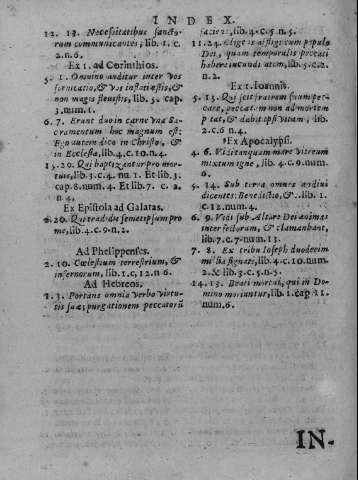 INDEX.
12. 13. Necessitatibus sancto-
rum communicantes, lib. 1. c.
2. n. 6.
Ex 1. ad Corinthios.
5. 1. Omnino auditur inter vos
fornicatio, & vos inflati estis, &
non magis flevistis, lib. 5. cap.
3. num. 1.
6. 7. Erunt duo in carne vna Sa-
cramentum hoc magnum est:
Ego autem dico in Christo, &
in Ecclesia, lib. 4. c. 10. n. 4.
15. 29. Qui baptizantur pro mor-
tuis, lib. 3. c. 4. nu. 1. Et lib. 3.
cap. 8. num. 4. Et lib. 7. c. 2.
n. 4.
Ex Epistola ad Galatas.
20. Qui tradidit semetipsum pro
me, lib. 4. c. 9. n. 2.
Ad Phelippenses.
2. 10. Cœlestium terrestrium, &
infernorum, lib. 1. c, 12. n 6.
Ad Hebreos.
1. 3. Portans omnia verbo virtu-
tis suæ; purgationem peccatorũ
faciens, lib. 4. c. 5. n. 5.
11. 24. affligi cum populo
Dei, quam temporalis peccati
habere iucunditatem, lib. 5. c. 2.
n. 2.
Ex 1. Ioannis.
5. Qui scit fratrem suum pec-
care, peccatum non ad mortem
petat, & dabitur ei vita, lib.
2. c. 6 n. 4.
Ex Apocalypsi.
4. 6. Vidi tanquam mare vitreum
mixtum igne, lib. 4. c. 9. num.
6.
5. 14. Sub terra omnes audiui
dicentes: Benedictio, &. lib. 1.
c. 12. num. 4.
6. 9. Vidi sub Altare Dei animas
interfectorum, & clamanbant,
lib. 7. c. 7. num. 13.
7. 8. Ex tribu Ioseph duodecim
millia signati, lib. 4. c. 10. num.
2. & lib. 3. c. 5. n. 5.
14. 13. Beati mortui, qui in Do-
mino moriuntur, lib. 1. cap. 11.
num. 6.
IN-